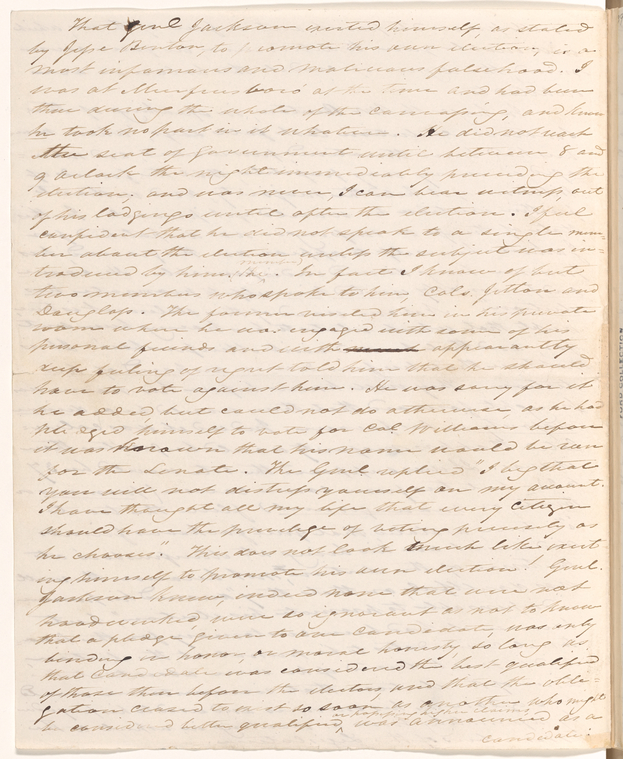 That Genl Jackson exerted himself, as stated
by Jesse Benton, to promote his own election, is a
most infamous and malicious falsehood. I
was at Murfreesboro' at the time and had been
there during the whole of the canvassing, and know
he took no part in it whatever. He did not reach
the seat of Government until between 8 and
9 oclock the night immediately preceeding the
election, and was never, I can bear witness, out
of his lodgings until after the election. I feel
confident that he did not speak to a single mem-
ber about the election unless the subject was in-
troduced by him. In fact I know of but
two members who spoke to him, Cols. Jetton and
Douglass. The former visited him in his private
room where he was engaged with some of his
personal friends and with appearantly
deep feeling of regret told him that he should
have to vote against him. He was sorry for it
he added but could not do otherwise, as he had
pledged himself to vote for Col. Williams before
it was known that his name would be run
for the Senate. The Genl. replied "I beg that
you will not distress yourself on my account.
I have thought all my life that every Citizen
should have the privilege of voting precisely as
he chooses". This does not look much like exert-
ing himself to promote his own election! Genl.
Jackson knew, indeed none that were not
hoodwinked were so ignorant as not to know
that a pledge given to one candidate, was only
binding in honor, or moral honesty, so long as
that Candidate was considered the best qualified
of those then before the electors and that the obli-
gation ceased to be so soon as another who might
be considered better qualified was announced as a
candidate.
FORD COLLECTION